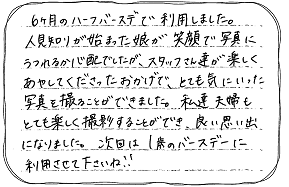 6ヶ月のハーフバースデで利用しました。
人見知りが始まった娘が笑顔で写真に
うつれるか心配でしたが、スタッフさん達が楽しく
あやしてくださったおかげで、とても気にいった
写真を撮ることができました。私達夫婦も
とても楽しく撮影することができ、良い思い出
になりました。次回は1歳のバースデーに
利用させて下さいね!!